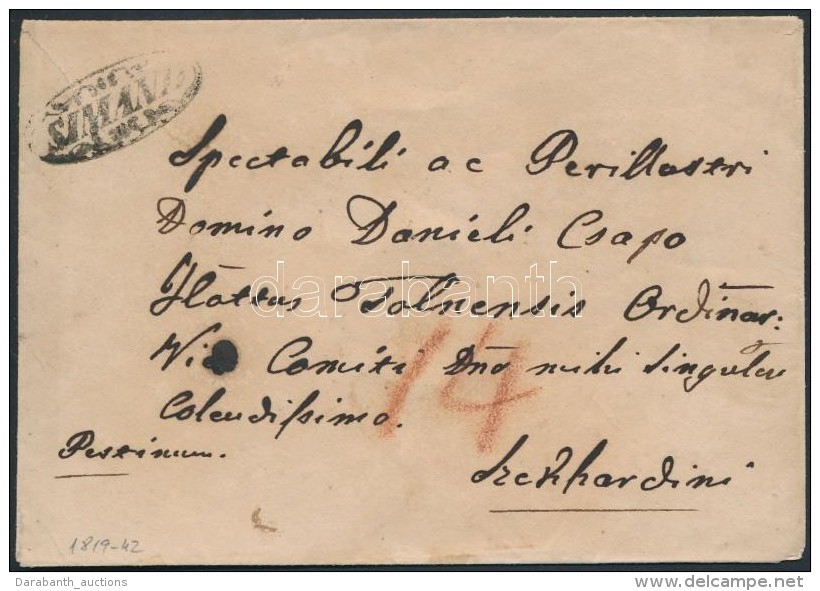 SIMAND
Spectabili ac Perillustri
Domino Danieli Csapo
Tolnensis Ordinar:
Vice Comiti Dno mihi Singular
Colendissimo.
14
Pestinum.
Szekhardini
1819-42
darabanth
Darabanth_auctions
delcampe.net